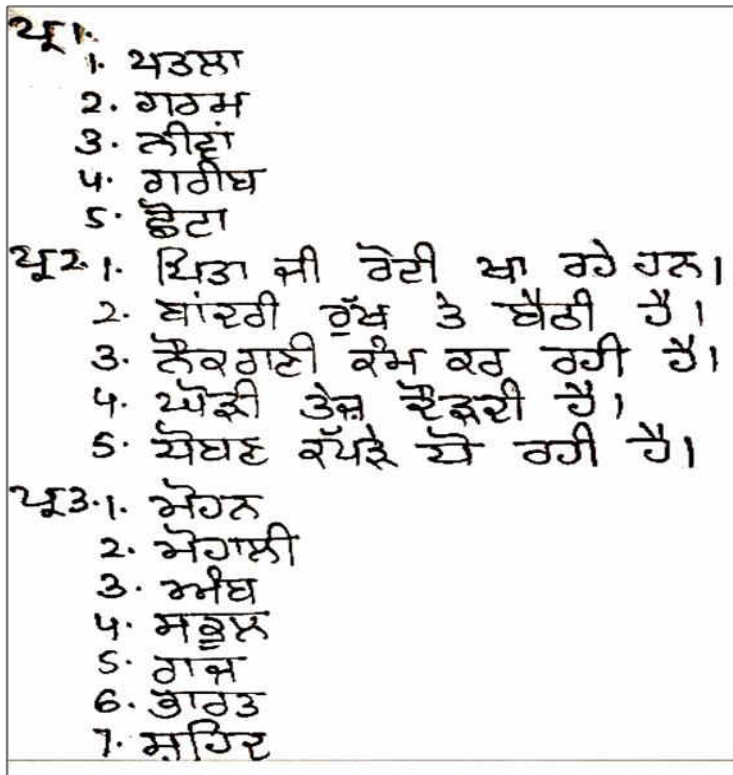 ਪ੍ਰ1.
1. ਪਤਲਾ
2. ਗਰਮ
3. ਨੀਵਾਂ
4. ਗਰੀਬ
5. ਛੋਟਾ
ਪ੍ਰ2. 1. ਪਿਤਾ ਜੀ ਰੋਟੀ ਖਾ ਰਹੇ ਹਨ।
2. ਬਾਂਦਰੀ ਰੁੱਖ ਤੇ ਬੈਠੀ ਹੈ।
3. ਨੌਕਰਾਣੀ ਕੰਮ ਕਰ ਰਹੀ ਹੈ।
4. ਘੋੜੀ ਤੇਜ਼ ਦੌੜਦੀ ਹੈ।
5. ਧੋਬਣ ਕੱਪੜੇ ਧੋ ਰਹੀ ਹੈ।
ਪ੍ਰ3. 1. ਮੋਹਨ
2. ਮੋਹਾਲੀ
3. ਅੰਬ
4. ਸਕੂਲ
5. ਰਾਜ
6. ਭਾਰਤ
7. ਸ਼ਹਿਦ